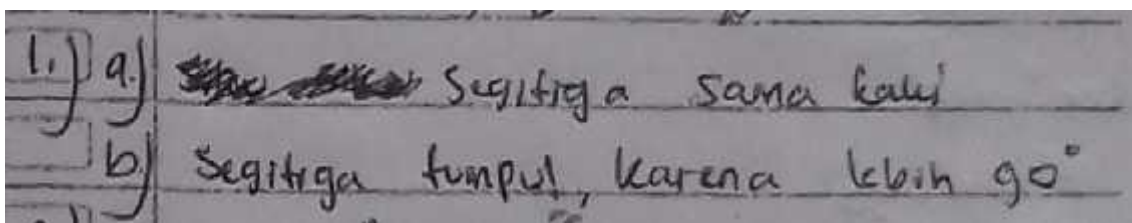 1.) a.) Segitiga sama kaki
b.) Segitiga tumpul, karena lebih 90°